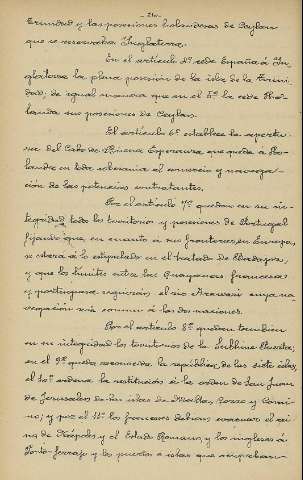 - 216 -
Trinidad y las posesiones holandesas de Ceylan
que se reservaba Inglaterra.
En el artículo 4º cede España á In-
glaterra la plena posesión de la isla de la Trini-
dad, de igual manera que en el 5º la cede Ho-
landa sus posesiones de Ceylan.
El artículo 6º establece la apertu-
ra del Cabo de Buena Esperanza que queda á Ho-
landa en toda soberanía al comercio y navega-
ción de las potencias contratantes.
Por el artículo 7º quedan en su in-
tegridad todos los territorios y posesiones de Portugal
fijando que, en cuanto á sus fronteras en Europa,
se estará á lo estipulado en el tratado de Badajoz,
y que los límites entre las Guayanas francesa
y portuguesa seguirán el río Arawari cuya na-
vegación será común á las dos naciones.
Por el artículo 8º quedan también
en su integridad los territorios de la Sublime Puerta;
en el 9º queda reconocida la república de las siete islas,
el 10º ordena la restitución á la orden de San Juan
de Jerusalén de las islas de Malta, Gozzo y Comi-
no; y por el 11º los franceses debían evacuar el rei-
no de Nápoles y el Estado Romano, y los ingleses á
Porto-Ferrajo y los puertos é islas que